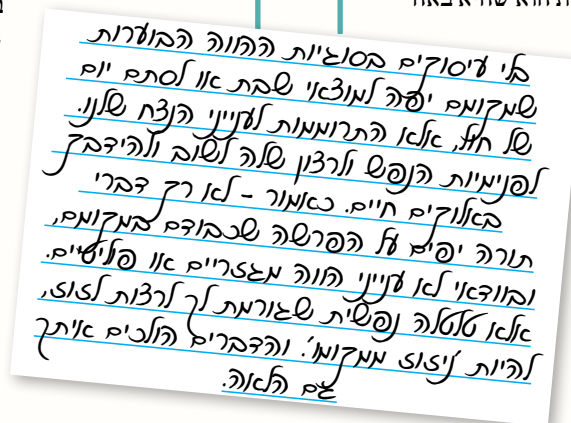 ת הוא שהיא באה
בלי עיסוקים בסוגיות ההווה הבוערות
שמקומם יפה למוצאי שבת או לסתם יום
של חול, אלא התרוממות לענייני הנצח שלנו.
לפנימיות הנפש ולרצון שלה לשוב ולהידבק
באלוקים חיים. כאמור - לא רק דברי
תורה יפים על הפרשה שכבודם במקומם,
ובוודאי לא ענייני הווה מגזריים או פוליטיים.
אלא טלטלה נפשית שגורמת לך לרצות לזוז,
להיות 'ניזוז ממקומו'. והדברים הולכים איתך
גם הלאה.